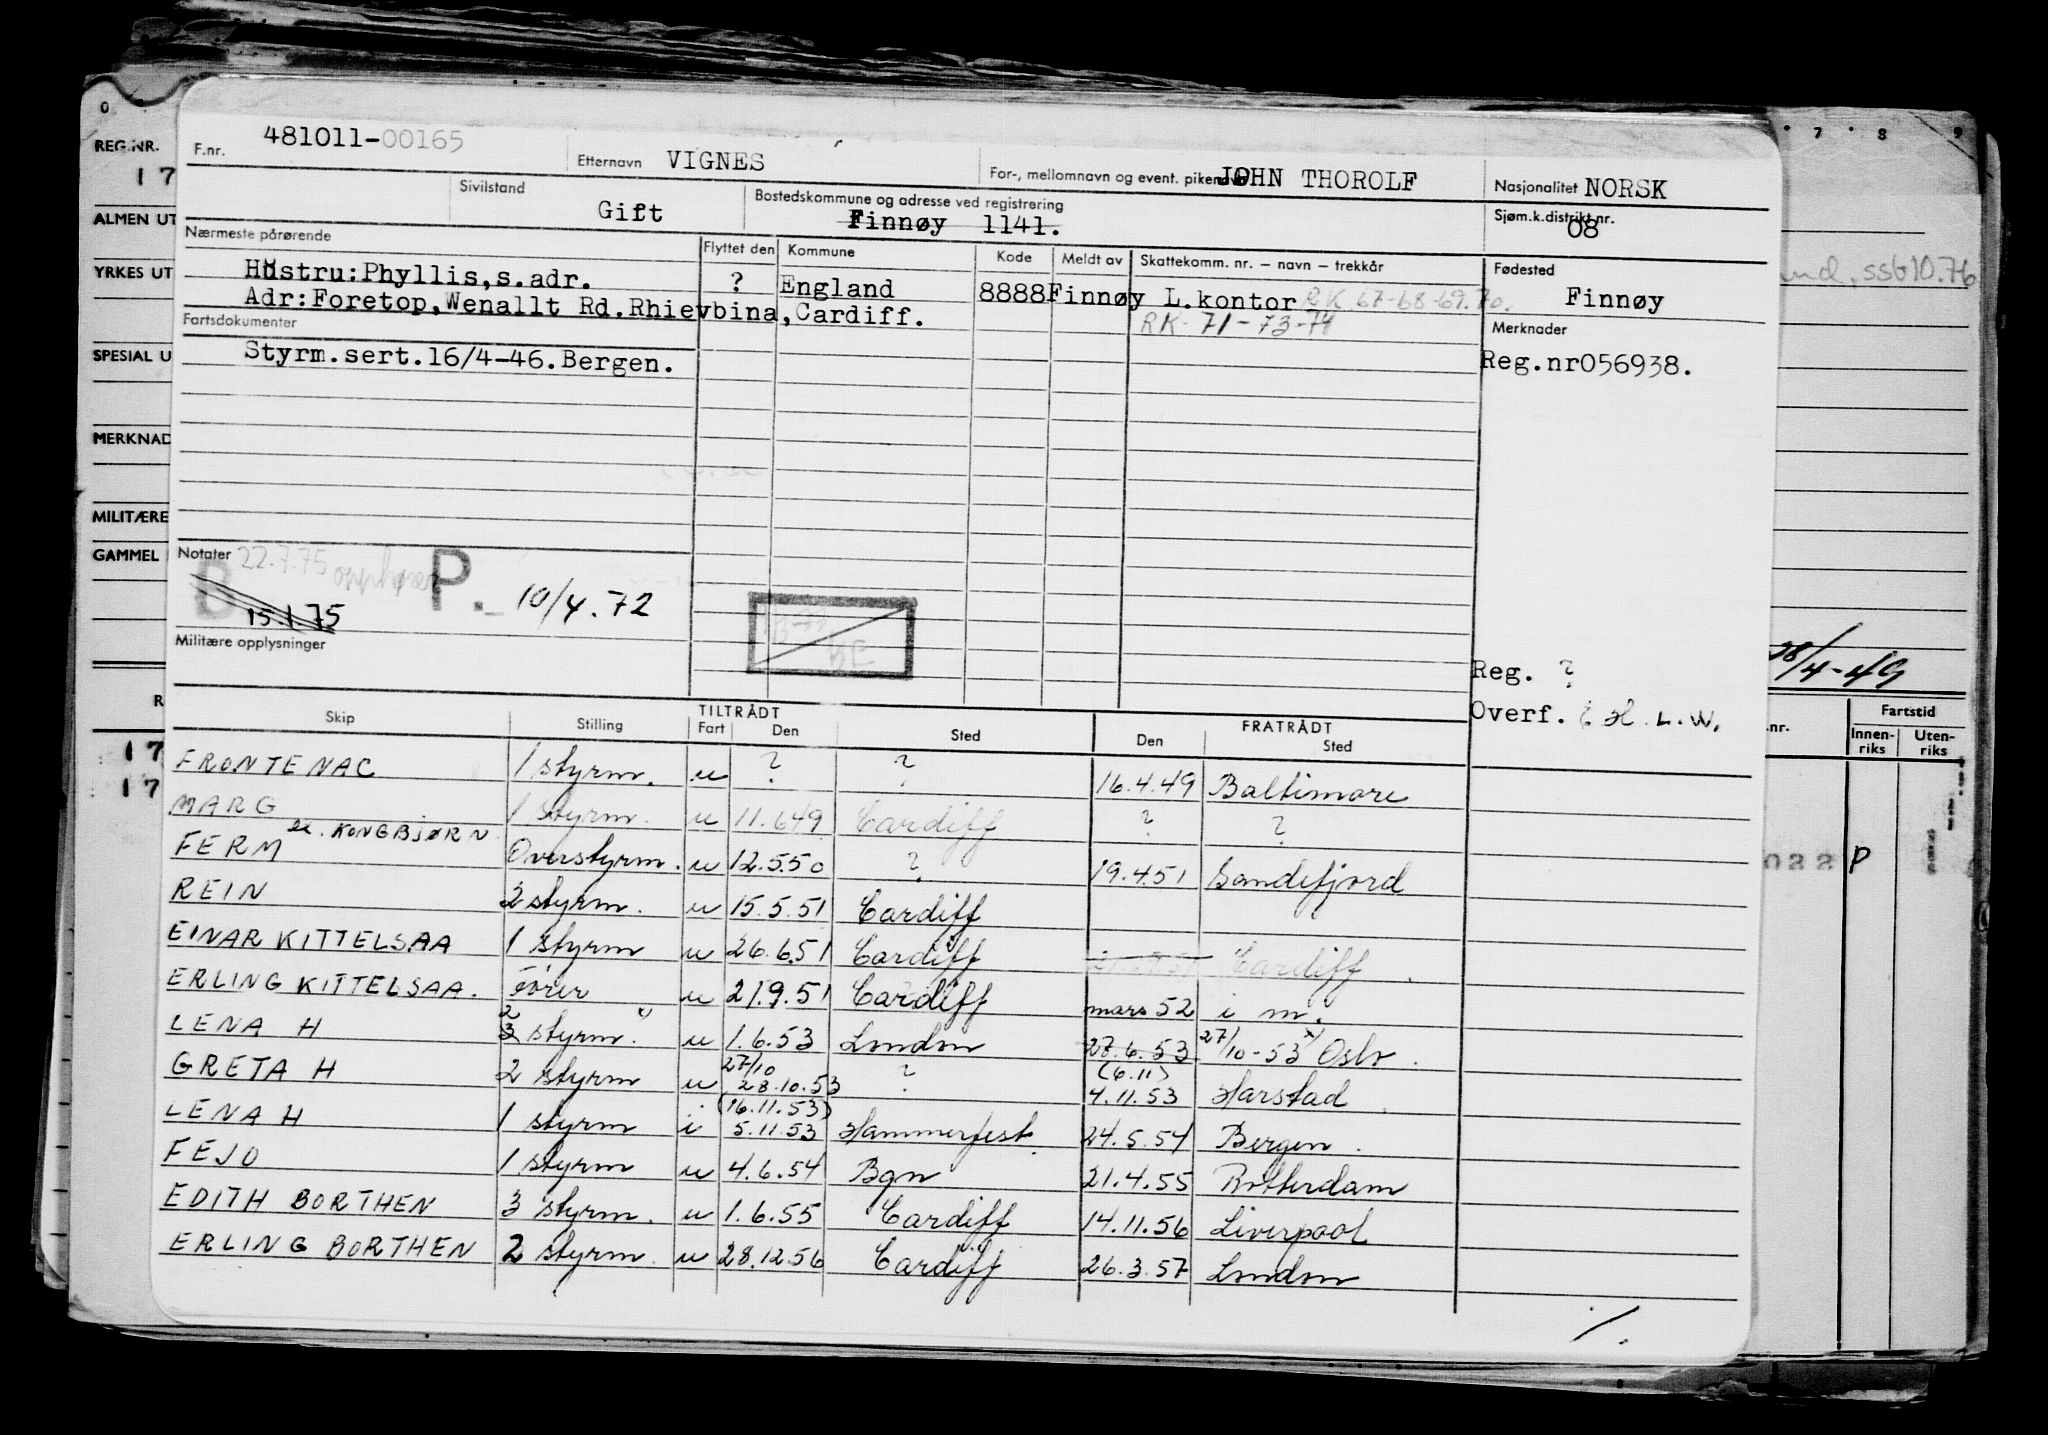 REG.NR.
1 7
ALMEN UT
YRKES UT
SPESIAL U
MERKNAD
MILITÆRE
GAMMEL
7 8 9
ssb 10.76
28/4-49
Fartstid
Innen-riks Uten-riks
P
F.nr. 481011-00165 Etternavn VIGNES For-, mellomnavn og event. pikenavn JOHN THOROLF Nasjonalitet NORSK
Sivilstand Gift Bostedskommune og adresse ved registrering Finnøy 1141. Sjøm.k.distrikt nr. 08
Nærmeste pårørende Flyttet den Kommune Kode Meldt av Skattekomm. nr. – navn – trekkår Fødested
Hustru:Phyllis,s.adr. ? England 8888 Finnøy L.kontor RK 67-68-69.70. Finnøy
Adr:Foretop,Wenallt Rd.Rhievbina,Cardiff. RK. 71-73-74
Fartsdokumenter Merknader
Styrm.sert.16/4-46.Bergen. Reg.nr056938.
Notater 22.7.75
P. 10/4.72
15.1.75
Militære opplysninger
Reg. ?
Overf. L.W.
Skip Stilling TILTRÅDT Fart Den Sted FRATRÅDT Den Sted
FRONTENAC 1 styrm. u ? ? 16.4.49 Baltimore
MARG 1 styrm. u 11.6.49 Cardiff ? ?
FERM KONGBJØRN Overstyrm. u 12.5.50 ? 19.4.51 Sandefjord
REIN 2 styrm. u 15.5.51 Cardiff
EINAR KITTELSAA 1 styrm u 26.6.51 Cardiff Cardiff
ERLING KITTELSAA. Fører u 21.9.51 Cardiff mars 52 i m.
LENA H 3 2 styrm. u 1.6.53 London 27.6.53 27/10-53 Oslo.
GRETA H 2 styrm u 27/10 28.10.53 ? (6.11) 4.11.53 Harstad
LENA H 1 styrm i (16.11.53) 5.11.53 Hammerfest 24.5.54 Bergen.
FEJO 1 styrm u 4.6.54 Bgn 21.4.55 Rotterdam
EDITH BORTHEN 3 styrm. u 1.6.55 Cardiff 14.11.56 Liverpool
ERLING BORTHEN 2 styrm. u 28.12.56 Cardiff 26.3.57 London